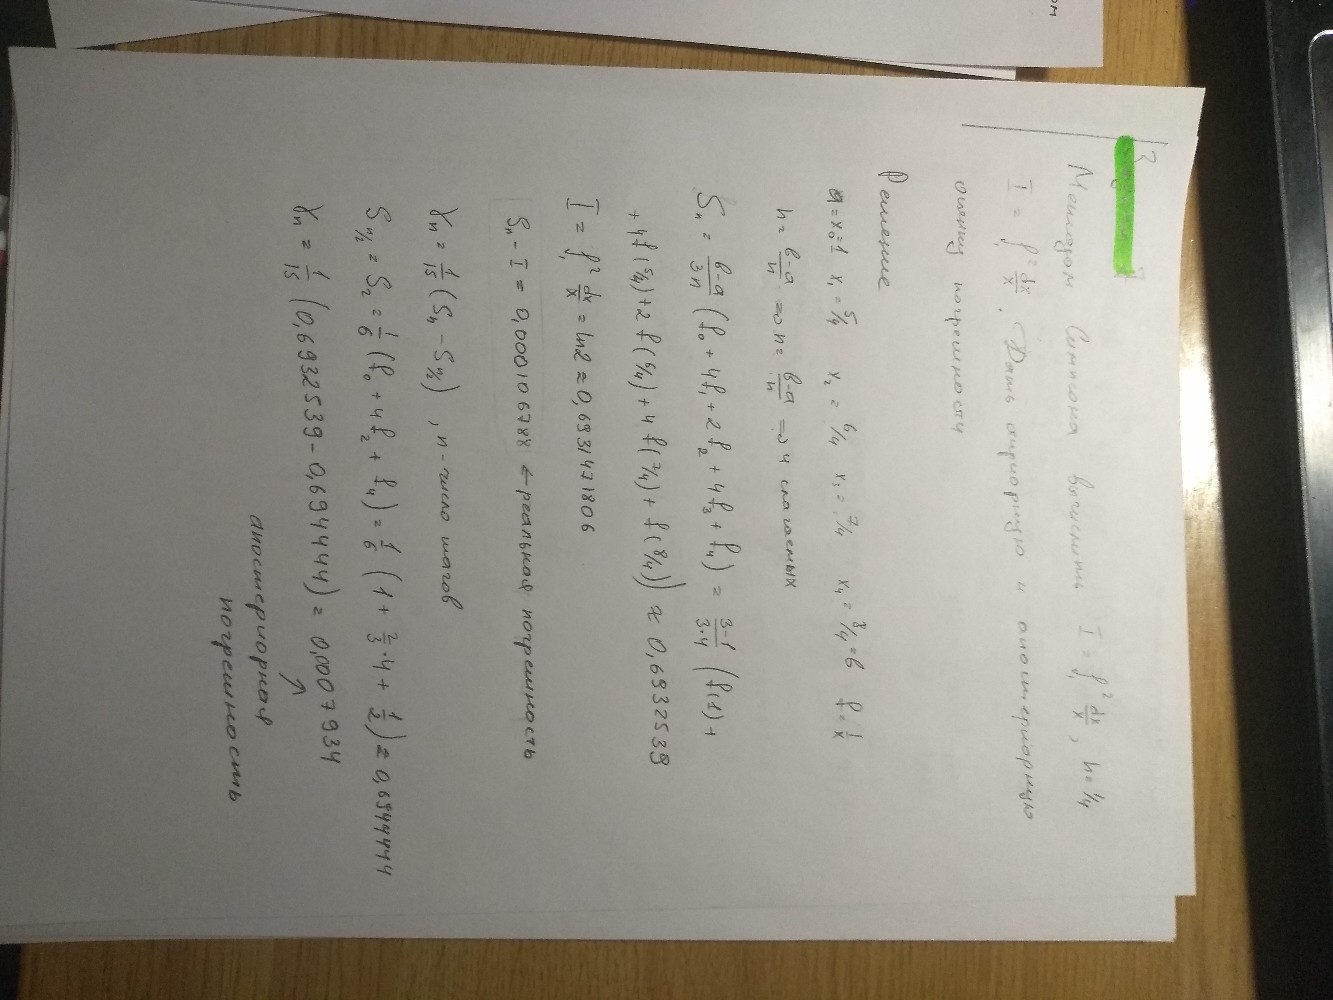 Методом Симпсона вычислить I = ∫₁² dx/x, h = 1/4
I = ∫₁² dx/x. Дать априорную и апостериорную
оценку погрешности
Решение
a = x₀ = 1 x₁ = 5/4 x₂ = 6/4 x₃ = 7/4 x₄ = 8/4 = b f = 1/x
h = (b-a)/n => n = (b-a)/h => 4 слагаемых
Sₙ = (b-a)/3n (f₀ + 4f₁ + 2f₂ + 4f₃ + f₄) = (3-1)/(3·4) (f(1) +
+ 4f(5/4) + 2f(6/4) + 4f(7/4) + f(8/4)) ≈ 0,6932539
I = ∫₁² dx/x = ln2 ≈ 0,6931471806
Sₙ - I = 0,000106788 ← реальная погрешность
γₙ = 1/15 (Sₙ - Sₙ/₂), n - число шагов
Sₙ/₂ = S₂ = 1/6 (f₀ + 4f₂ + f₄) = 1/6 (1 + 2/3·4 + 1/2) ≈ 0,6944444
γₙ = 1/15 (0,6932539 - 0,694444) = 0,0007934
апостериорная
погрешность
ом